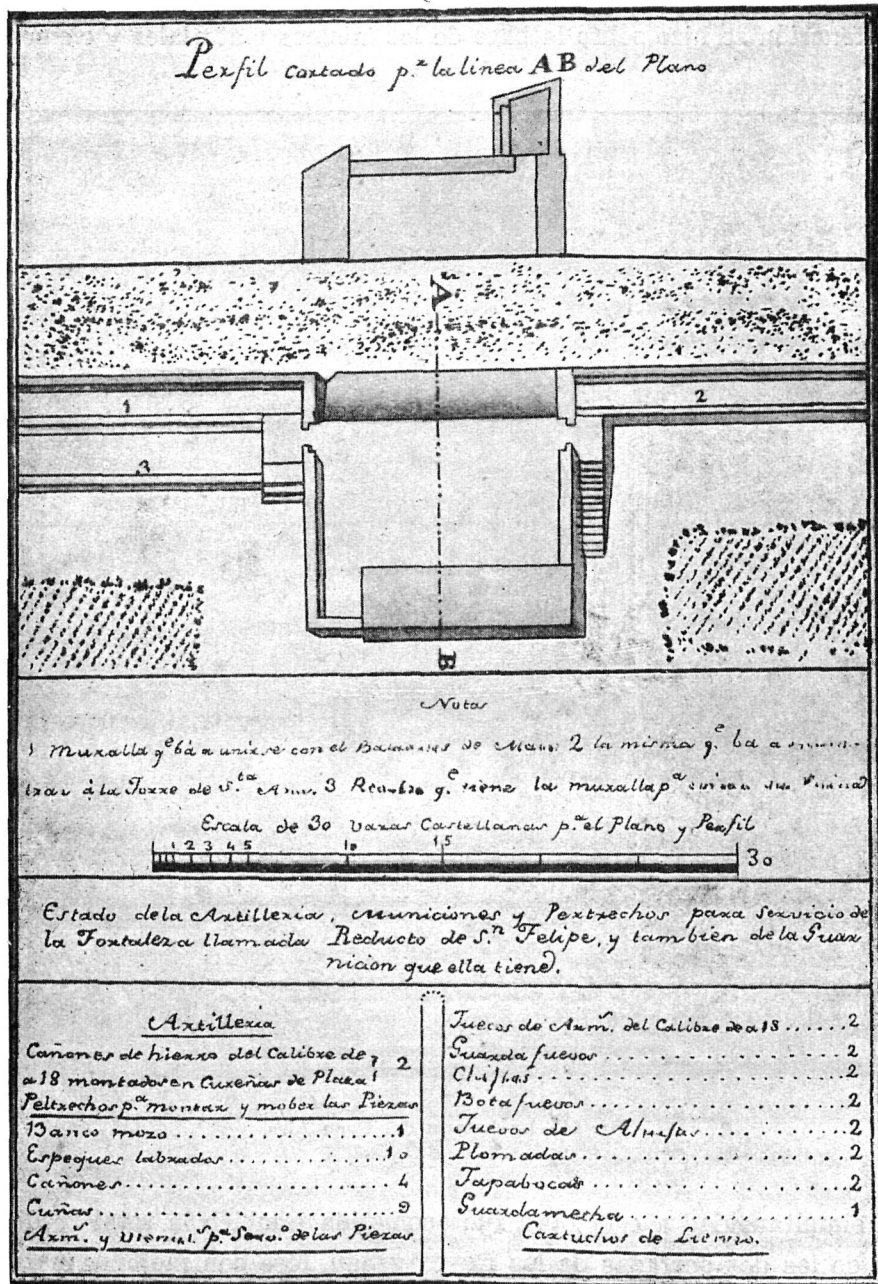 Perfil Cortado p.r la linea AB del Plano
A
1
2
3
B
Notas
1 Muralla q.e bá a unirse con el de 2 la misma q.e ba a
trar á la Torre de S.ta Ana. 3 q.e tiene la muralla p.a
Escala de 30 Varas Castellanas p.a el Plano y Perfil
1 2 3 4 5 10 15 30
Estado dela Artilleria, Municiones y Pertrechos para Servicio de
la Fortaleza llamada Reducto de S.n Felipe, y tambien de la Guar
nicion que ella tiene.
Artilleria
Cañones de hierro del Calibre de
a 18 montados en Cureñas de Plaza 2
Peltrechos p.a montar y mober las Piezas
Banco mozo .......... 1
Espeques labrados .......... 10
Cañones .......... 4
Cuñas .......... 9
Arm.s y Utensil.s p.a Serv.o de las Piezas
Juegos de Arm.s del Calibre de a 18 ...... 2
Guarda fuegos .......... 2
Chiflas .......... 2
Bota fuegos .......... 2
Juegos de Abujas .......... 2
Plomadas .......... 2
Tapabocas .......... 2
Guardamecha .......... 1
Cartuchos de Lienzo.